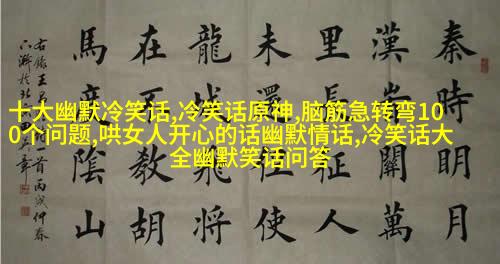 十大幽默冷笑话,冷笑话原神,脑筋急转弯10
0个问题,哄女人开心的话幽默情话,冷笑话大
全幽默笑话问答
秦時明月
漢關萬
里人
未還使
龍將
在不胡
馬度陰山
右錄王
首丙戌仲春